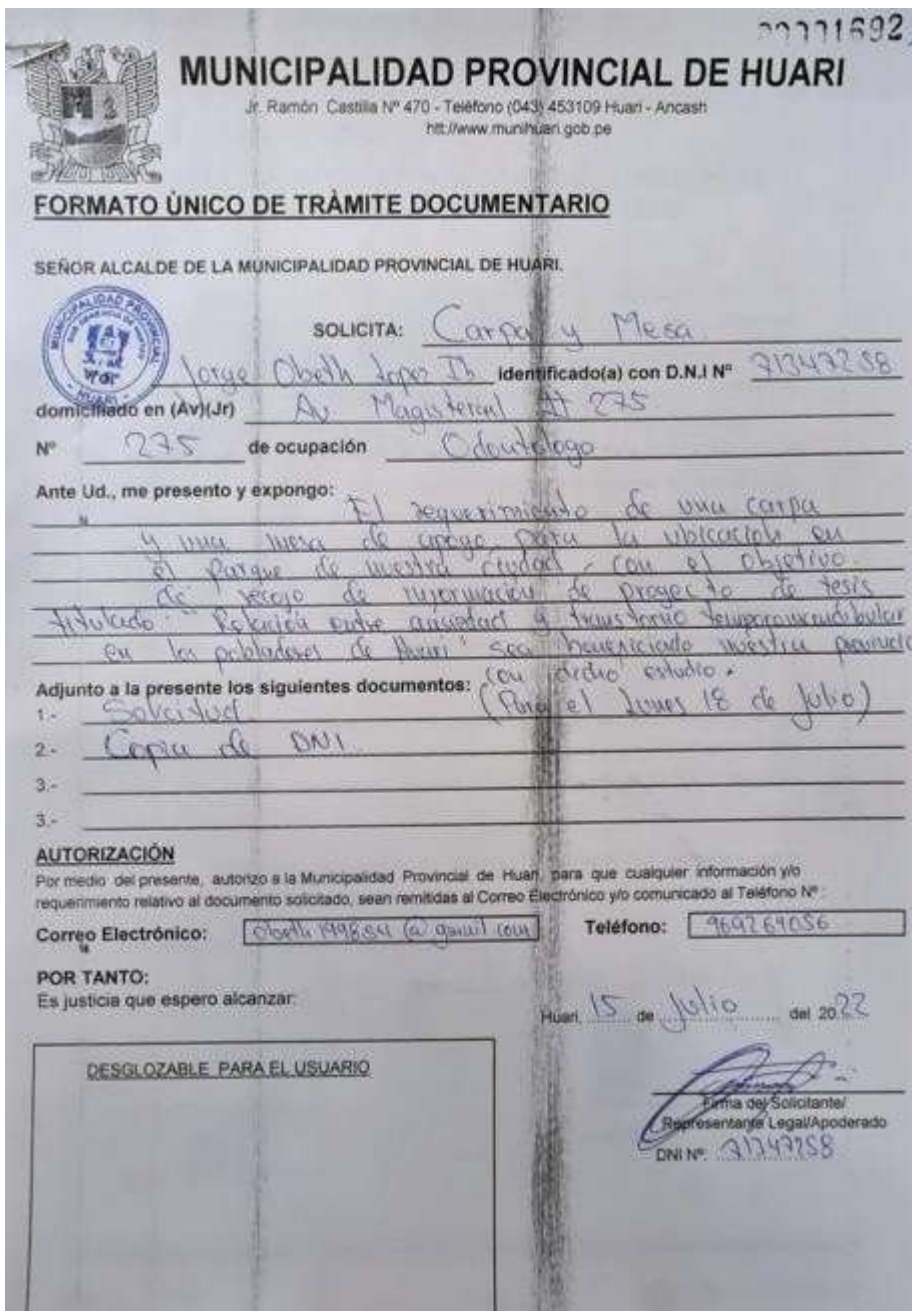 1692
MUNICIPALIDAD PROVINCIAL DE HUARI
Jr. Ramón Castilla Nº 470 - Teléfono (043) 453109 Huari - Ancash
htt://www.munihuari.gob.pe
FORMATO ÙNICO DE TRÀMITE DOCUMENTARIO
SEÑOR ALCALDE DE LA MUNICIPALIDAD PROVINCIAL DE HUARI.
MUNICIPALIDAD PROVINCIAL
HUARI
SOLICITA: Carpa y Mesa
Jorge Obeth Lopez identificado(a) con D.N.I Nº
domiciliado en (Av)(Jr) Av. Magisterial 275
Nº 275 de ocupación Odontologo
Ante Ud., me presento y expongo: El requerimiento de una carpa
y una mesa de apoyo, para la ubicación en
el parque de nuestra ciudad, con el objetivo
de recojo de información de proyecto de tesis
titulado: "Relación entre ansiedad y transtorno temporomandibular
en los pobladores de Huari" sea beneficiado nuestra provincia
con dicho estudio.
Adjunto a la presente los siguientes documentos: (Para el Lunes 18 de Julio)
1.- Solicitud
2.- Copia de DNI
3.-
3.-
AUTORIZACIÓN
Por medio del presente, autorizo a la Municipalidad Provincial de Huari, para que cualquier información y/o
requerimiento relativo al documento solicitado, sean remitidas al Correo Electrónico y/o comunicado al Teléfono Nº:
Correo Electrónico: @gmail com Teléfono: 969264056
POR TANTO:
Es justicia que espero alcanzar:
Huari, 15 de Julio del 2022
DESGLOZABLE PARA EL USUARIO
Firma del Solicitante/
Representante Legal/Apoderado
DNI Nº: 71347258